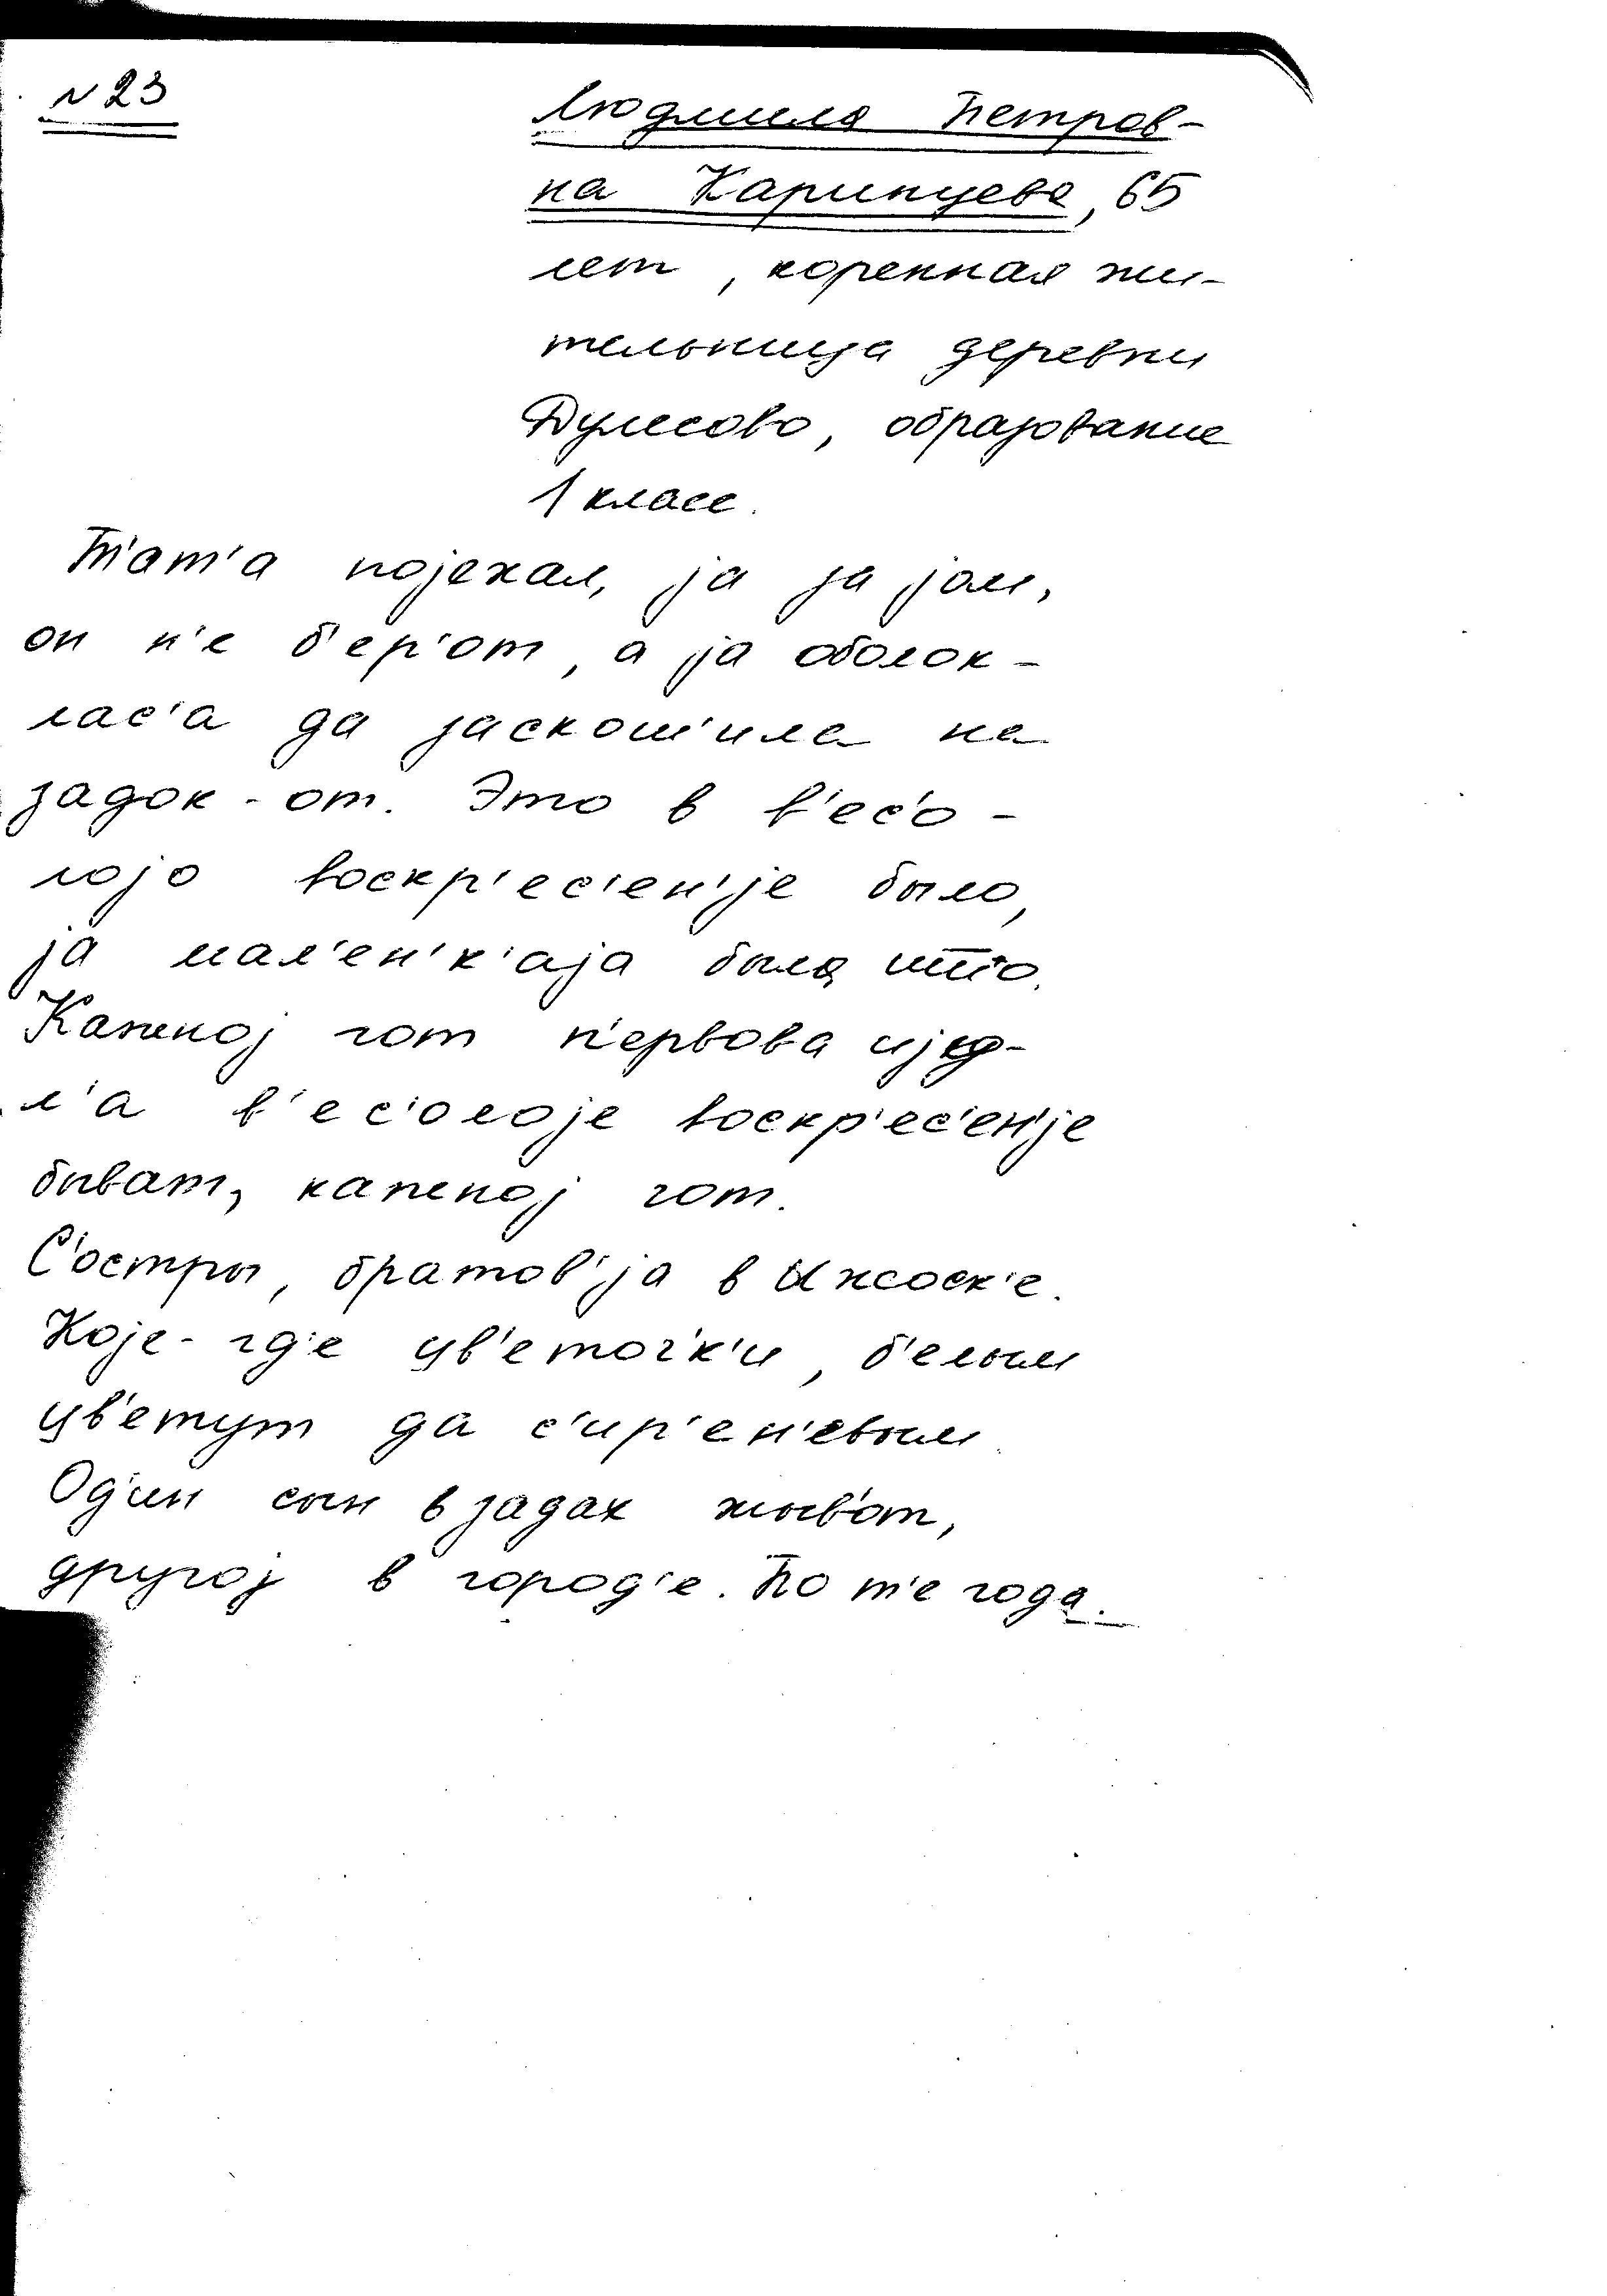 № 23
Людмила Петров-
на Каринцева, 65
лет, коренная жи-
тельница деревни
Дулесово, образование
1 класс.
Т'ат'а појехал, ја за јом,
он н'е б'ер'от, а ја оболок-
лас'а да заскоч'ила на
задок-от. Это в в'ес'о-
лојо воскр'ес'ен'је было,
ја мал'ен'к'аја была што.
Каженој гот п'ервова ијул-
л'а в'ес'олоје воскр'ес'ен'је
быват, каженој гот.
С'остры, братов'ја в Ижевск'е.
Које-гд'е цв'еточ'к'и, б'елым
цв'етут да с'ир'ен'евым.
Од'ин сын в задах жыв'от,
другој в город'е. По т'е года.